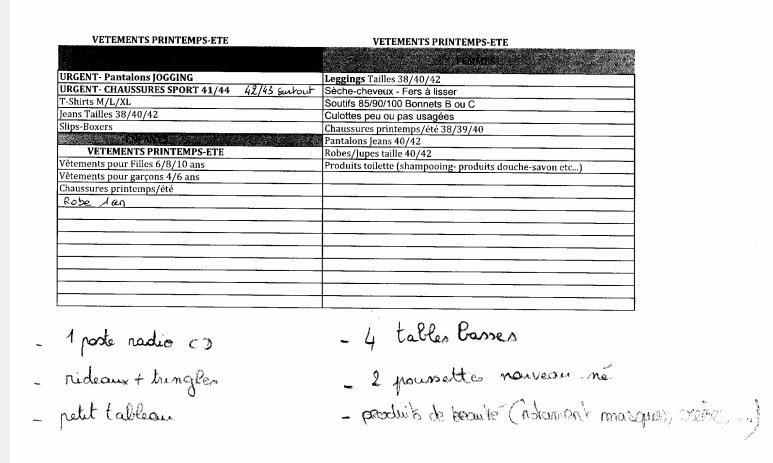 VETEMENTS PRINTEMPS-ETE
URGENT- Pantalons JOGGING
URGENT- CHAUSSURES SPORT 41/44 42/43 surtout
T-Shirts M/L/XL
Jeans Tailles 38/40/42
Slips-Boxers
VETEMENTS PRINTEMPS-ETE
Vêtements pour Filles 6/8/10 ans
Vêtements pour garçons 4/6 ans
Chaussures printemps/été
Robe 1an
VETEMENTS PRINTEMPS-ETE
FEMMES
Leggings Tailles 38/40/42
Sèche-cheveux - Fers à lisser
Soutifs 85/90/100 Bonnets B ou C
Culottes peu ou pas usagées
Chaussures printemps/été 38/39/40
Pantalons Jeans 40/42
Robes/Jupes taille 40/42
Produits toilette (shampooing- produits douche-savon etc...)
- 1 poste radio CD
- rideaux + tringles
- petit tableau
- 4 tables basses
- 2 poussettes nouveau-né
- produits de beauté (notamment masques, crème, ...)